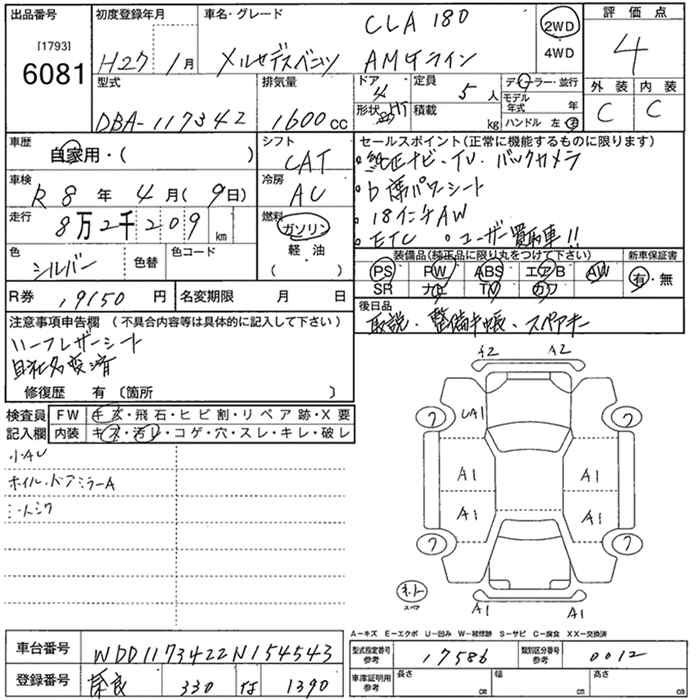 出品番号 初度登録年月 車名・グレード CLA 180 2WD 評価点
[1793] 4
6081 H27 1月 メルセデスベンツ AMGライン 4WD
型式 排気量 ドア 定員 ディーラー・並行 外装 内装
4 5人 モデル年式 年 C C
DBA-117342 1600cc 形状 積載 kg ハンドル 左・右
車歴 シフト セールスポイント(正常に機能するものに限ります)
自家用・( ) CAT ・純正ナビ・TV・バックカメラ
車検 冷房 ・D席パワーシート
R8年 4月(9日) AC ・18インチAW
走行 8万2千209km 燃料 ガソリン ・ETC ・ユーザー買取車!!
色 色替 色コード 軽油 装備品(純正品に限り丸をつけて下さい) 新車保証書
シルバー ( ) PS PW ABS エアB AW 有・無
SR ナビ TV カワ
R券 ,9150円 名変期限 月 日 後日品
注意事項申告欄(不具合内容等は具体的に記入して下さい) 取説・整備手帳・スペアキー
ハーフレザーシート
自社名変済
修復歴 有(箇所 )
検査員 FW キズ・飛石・ヒビ割・リペア跡・X要
記入欄 内装 キズ・汚レ・コゲ・穴・スレ・キレ・破レ
小AU
ホイル・ドアミラーA
シートシワ
A2 A2
7 UA1 7
A1 A1
A1 A1
7 7
スペア A1 A1
A－キズ E－エクボ U－凹み W－補修跡 S－サビ C－腐食 XX－交換済
車台番号 WDD1173422N154543 型式指定番号 参考 17586 類別区分番号 参考 0012
登録番号 奈良 330 は 1390 車庫証明用 参考 長さ cm 幅 cm 高さ cm